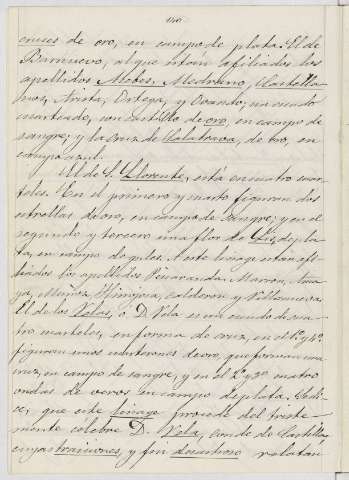 cruses de oro, en campo de plata. El de
Barnuevo, al que están afiliados los
apellidos Motes, Medrano, Castella-
nos, Arista, Ortega, y Ovando; un escudo
cuarteado, con Castillo de oro en campo de
sangre; y la Cruz de Calatrava, de oro, en
campo azul.
El de S. Llorente, está en cuatro cuar-
teles. En el primero y cuarto figuran dos
estrellas de oro, en campo de sangre; y en el
segundo y tercero una flor de Lis, de pla-
ta, en campo de gules. A este linage están afi-
liados los apellidos Peñaranda, Marron, Ama-
ya, Muñoz, Hinojosa, Calderon y Villanueva.
El de los Velas, ó D. Vela es un escudo de cua-
tro cuarteles, en forma de cruz, en el 1º y 4º
figuran unos de oro, que forman una
cruz, en campo de sangre, y en el 2º y 3º cuatro
ondas de veros en campo de plata. Se di-
ce, que este linage procede del triste-
mente célebre D. Vela, conde de Castilla
cuyas traiciones, y fin desastroso relatan